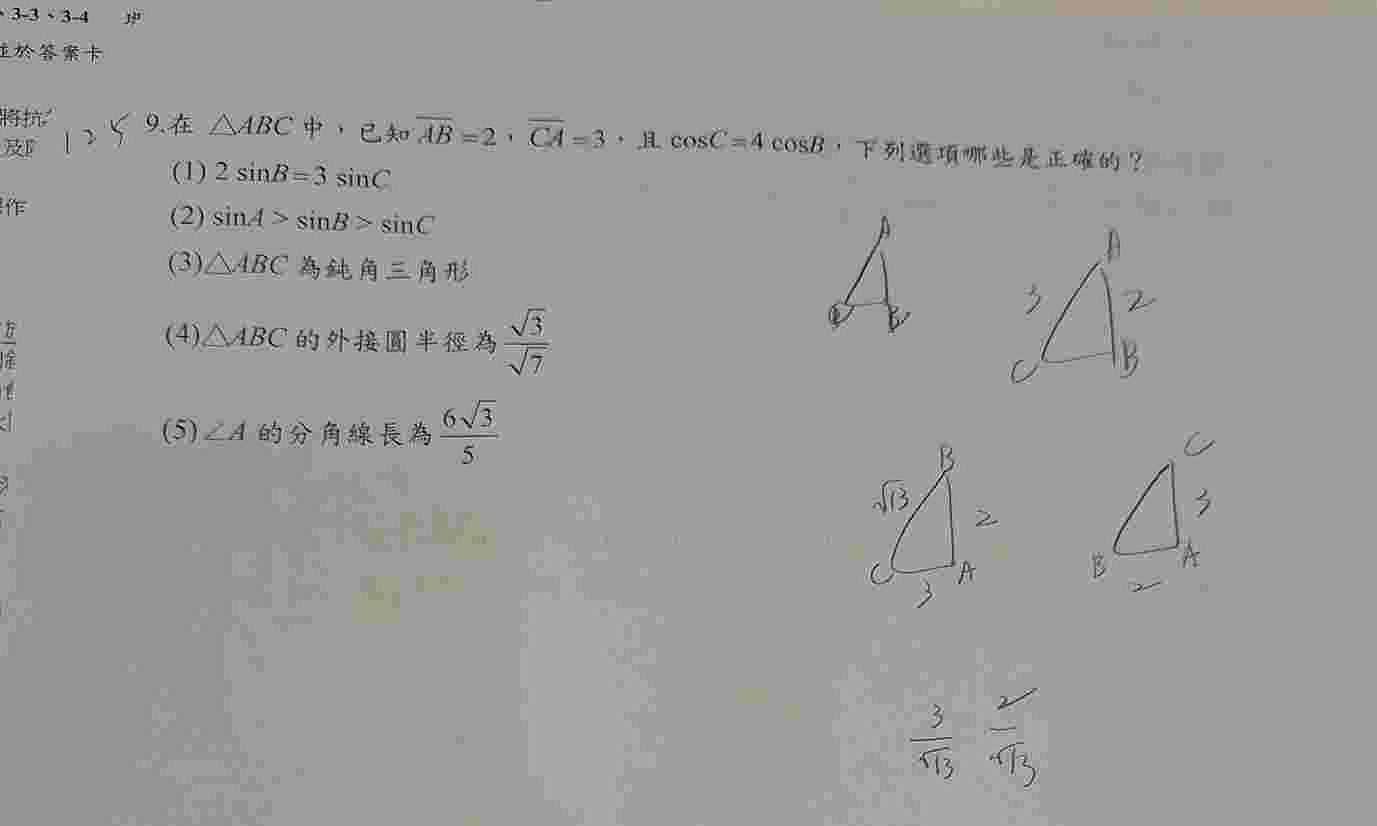 、3-3、3-4
並於答案卡
將抗
及
作
1 2 5
9.在 △ABC 中，已知 AB=2，CA=3，且 cosC=4 cosB，下列選項哪些是正確的？
(1) 2 sinB=3 sinC
(2) sinA > sinB > sinC
(3)△ABC 為鈍角三角形
(4)△ABC 的外接圓半徑為 √3/√7
(5)∠A 的分角線長為 6√3/5
A
C B
A
3 2
C B
B
√13 2
C A
3
C
3
B A
2
3/√13 2/√13